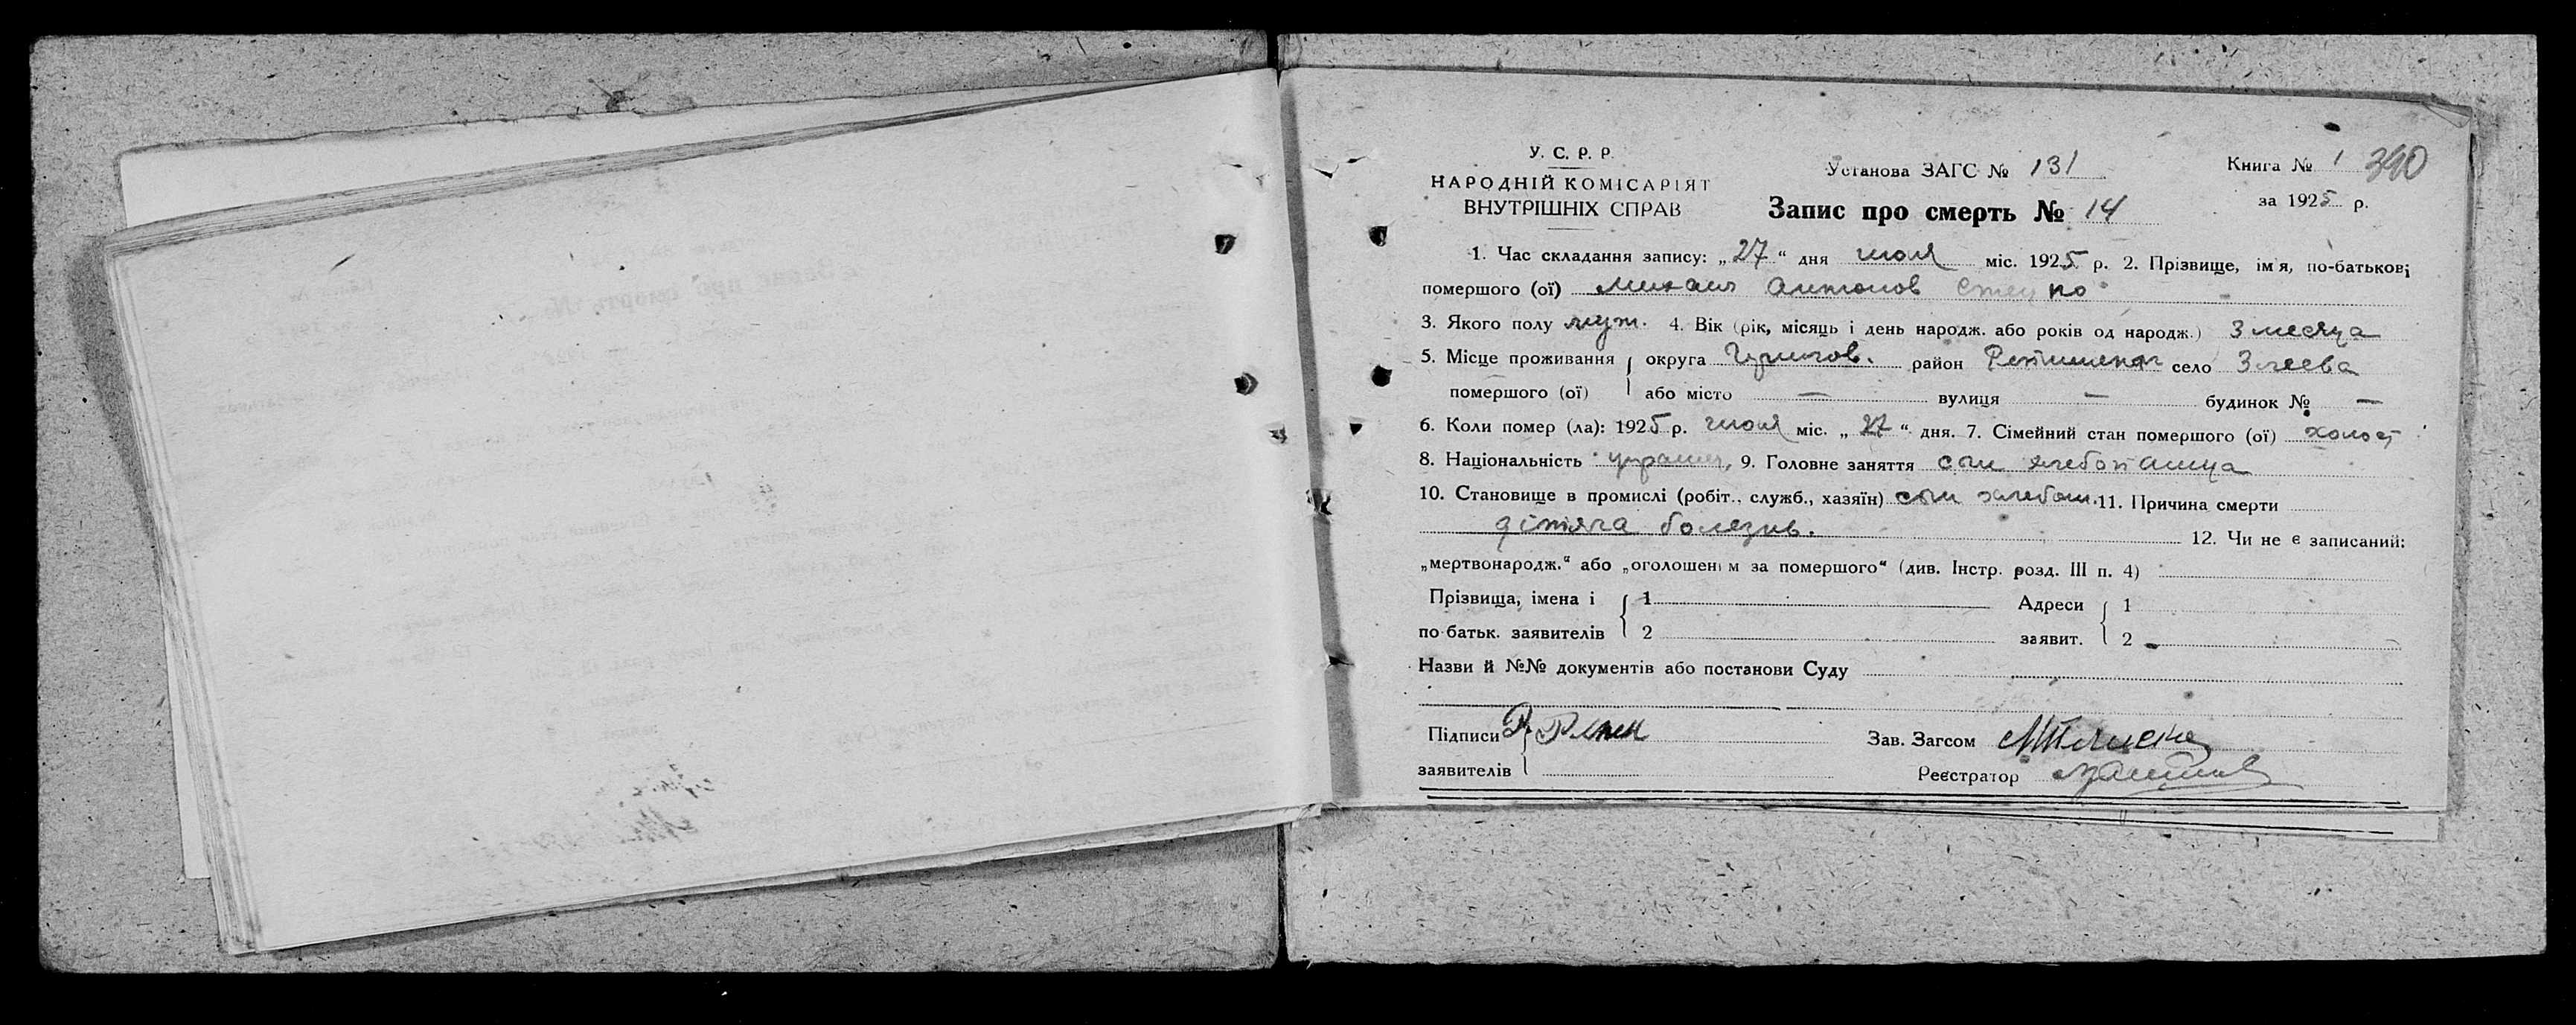 У. С. Р. Р.
НАРОДНІЙ КОМІСАРІЯТ
ВНУТРІШНІХ СПРАВ
Установа ЗАГС № 131
Запис про смерть № 14
Книга № 1 390
за 1925 р.
1. Час складання запису: „27“ дня июля міс. 1925 р. 2. Прізвище, ім'я, по-батькові
помершого (ої) Михаил Антонов
3. Якого полу муж. 4. Вік (рік, місяць і день народж. або років од народж.) 3 месяца
5. Місце проживання округа район село Змеева
помершого (ої) або місто — вулиця — будинок № —
6. Коли помер (ла): 1925 р. июля міс. „27“ дня. 7. Сімейний стан помершого (ої) холост
8. Національність украин, 9. Головне заняття сын хлебопашца
10. Становище в промислі (робіт., служб., хазяїн) сын хлебопаш. 11. Причина смерти
дітяча болезнь.
12. Чи не є записаний:
„мертвонародж.“ або „оголошеним за помершого“ (див. Інстр. розд. III п. 4)
Прізвища, імена і 1 Адреси 1
по-батьк. заявителів 2 заявит. 2
Назви й №№ документів або постанови Суду
Підписи
заявителів
Зав. Загсом
Реєстратор